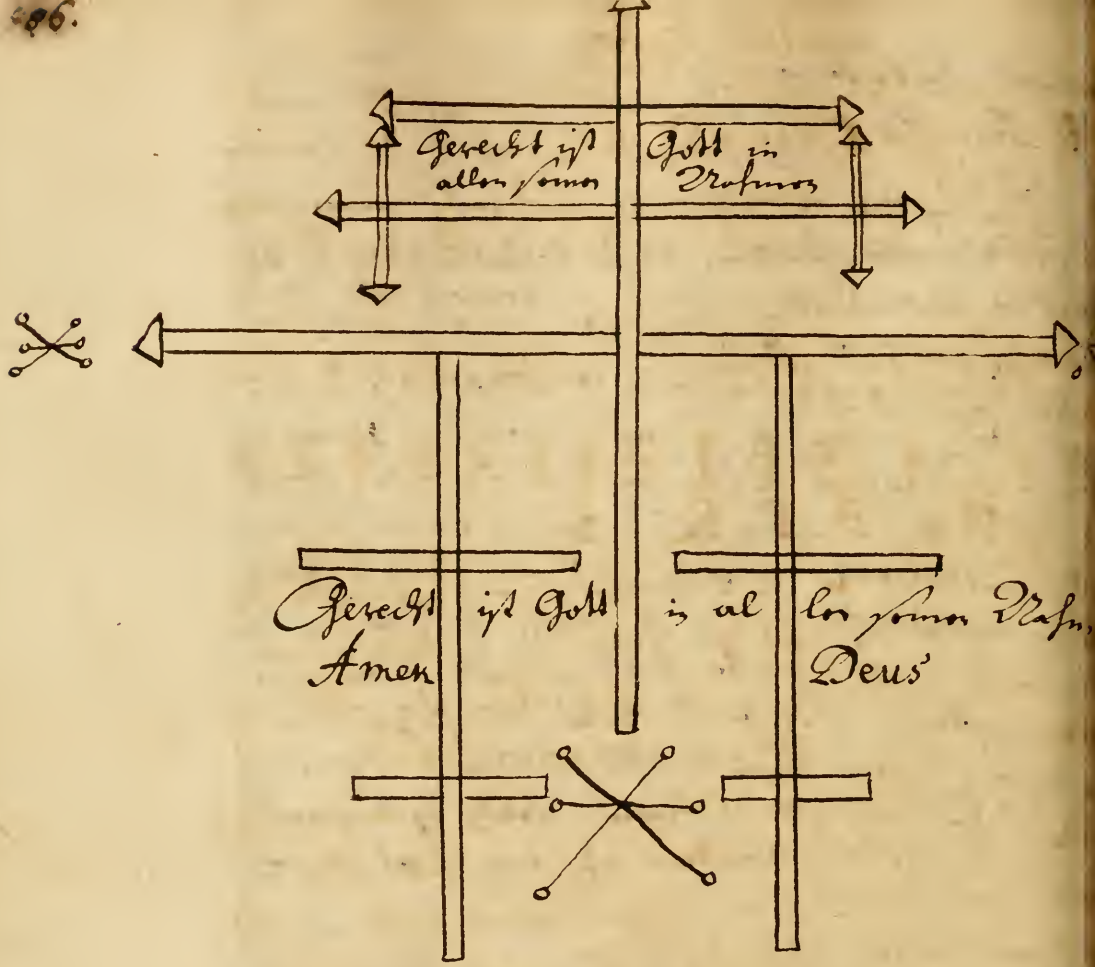 86.
Gerecht ist Gott in
allen seinen Nahmen
Gerecht ist Gott in al len seinen Nahm
Amen Deus